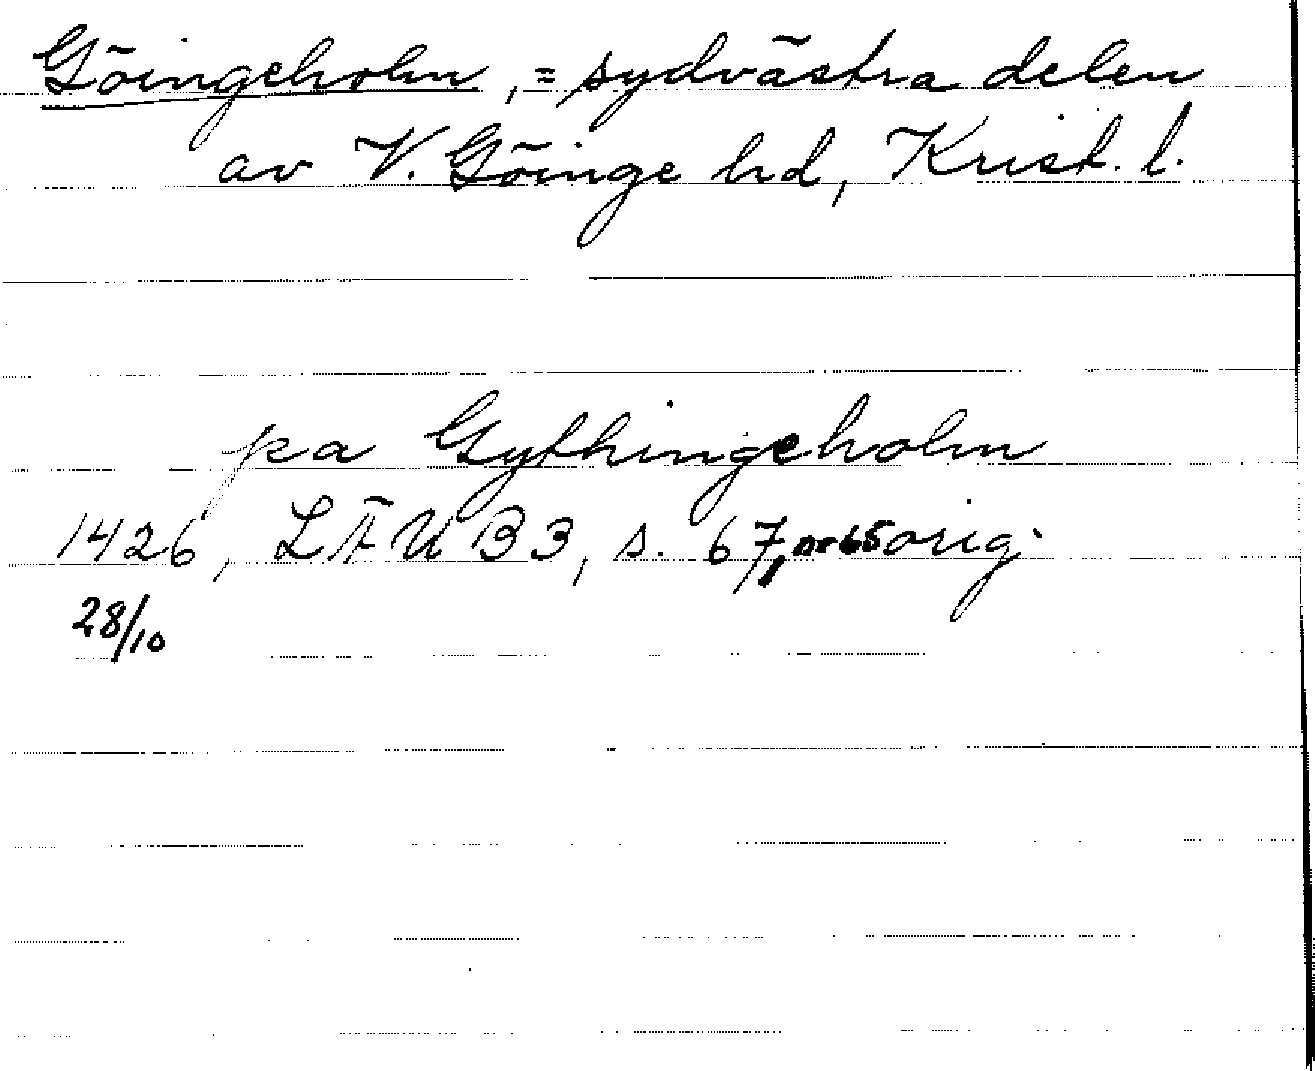 Göingeholm, = sydvästra delen
av V. Göinge hd, Krist. l.
pa Gythingeholm
1426, LÄUB 3, s. 67, nr 65 orig.
28/10